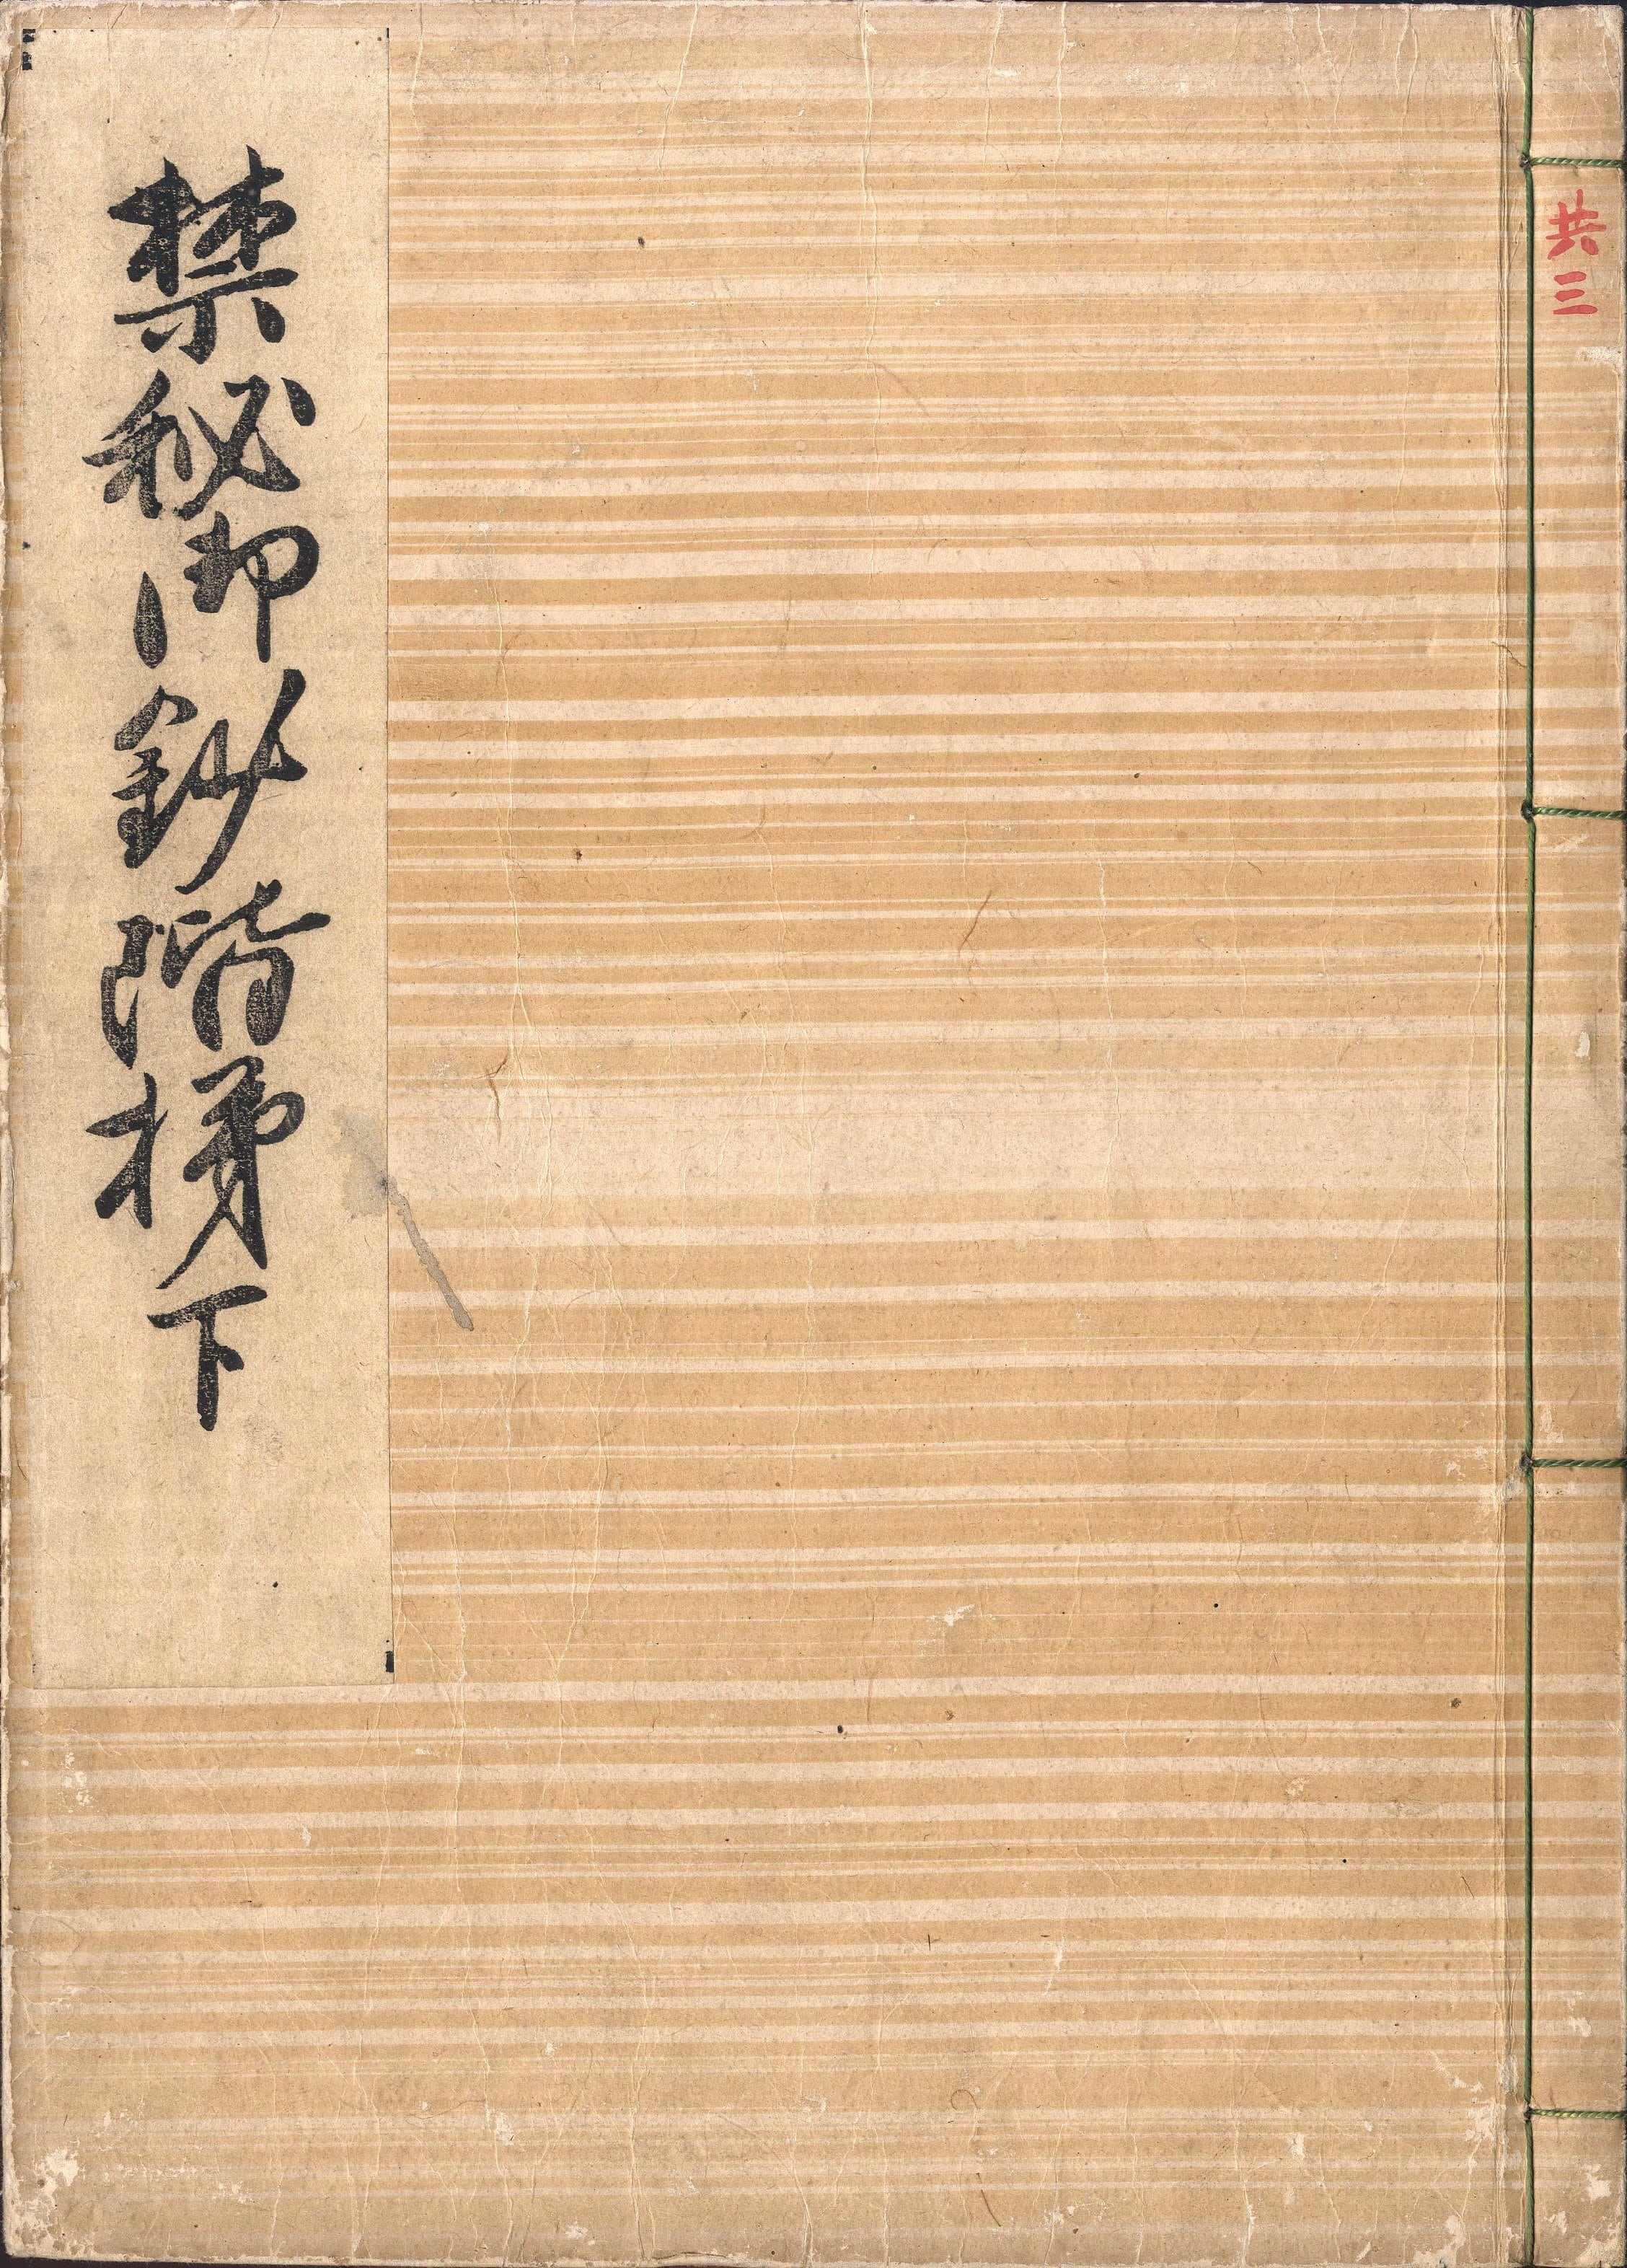 共三
禁秘御鈔階梯下